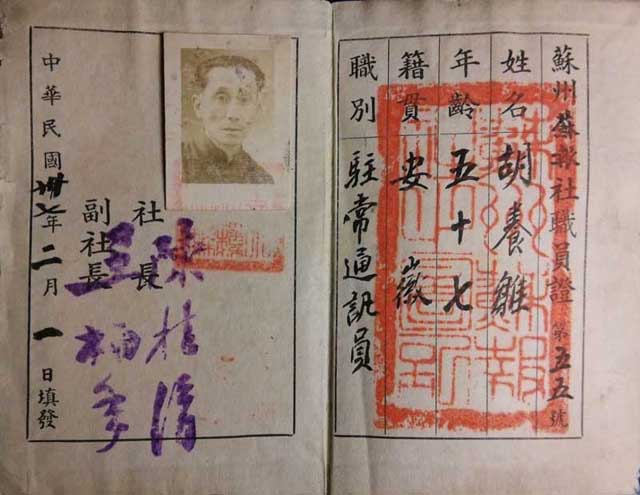 蘇州蘇報社職員證 第五五號
姓名 胡養雛
年齡 五十七
籍貫 安徽
職別 駐常通訊員
社長
副社長
中華民國卅七年二月一日填發